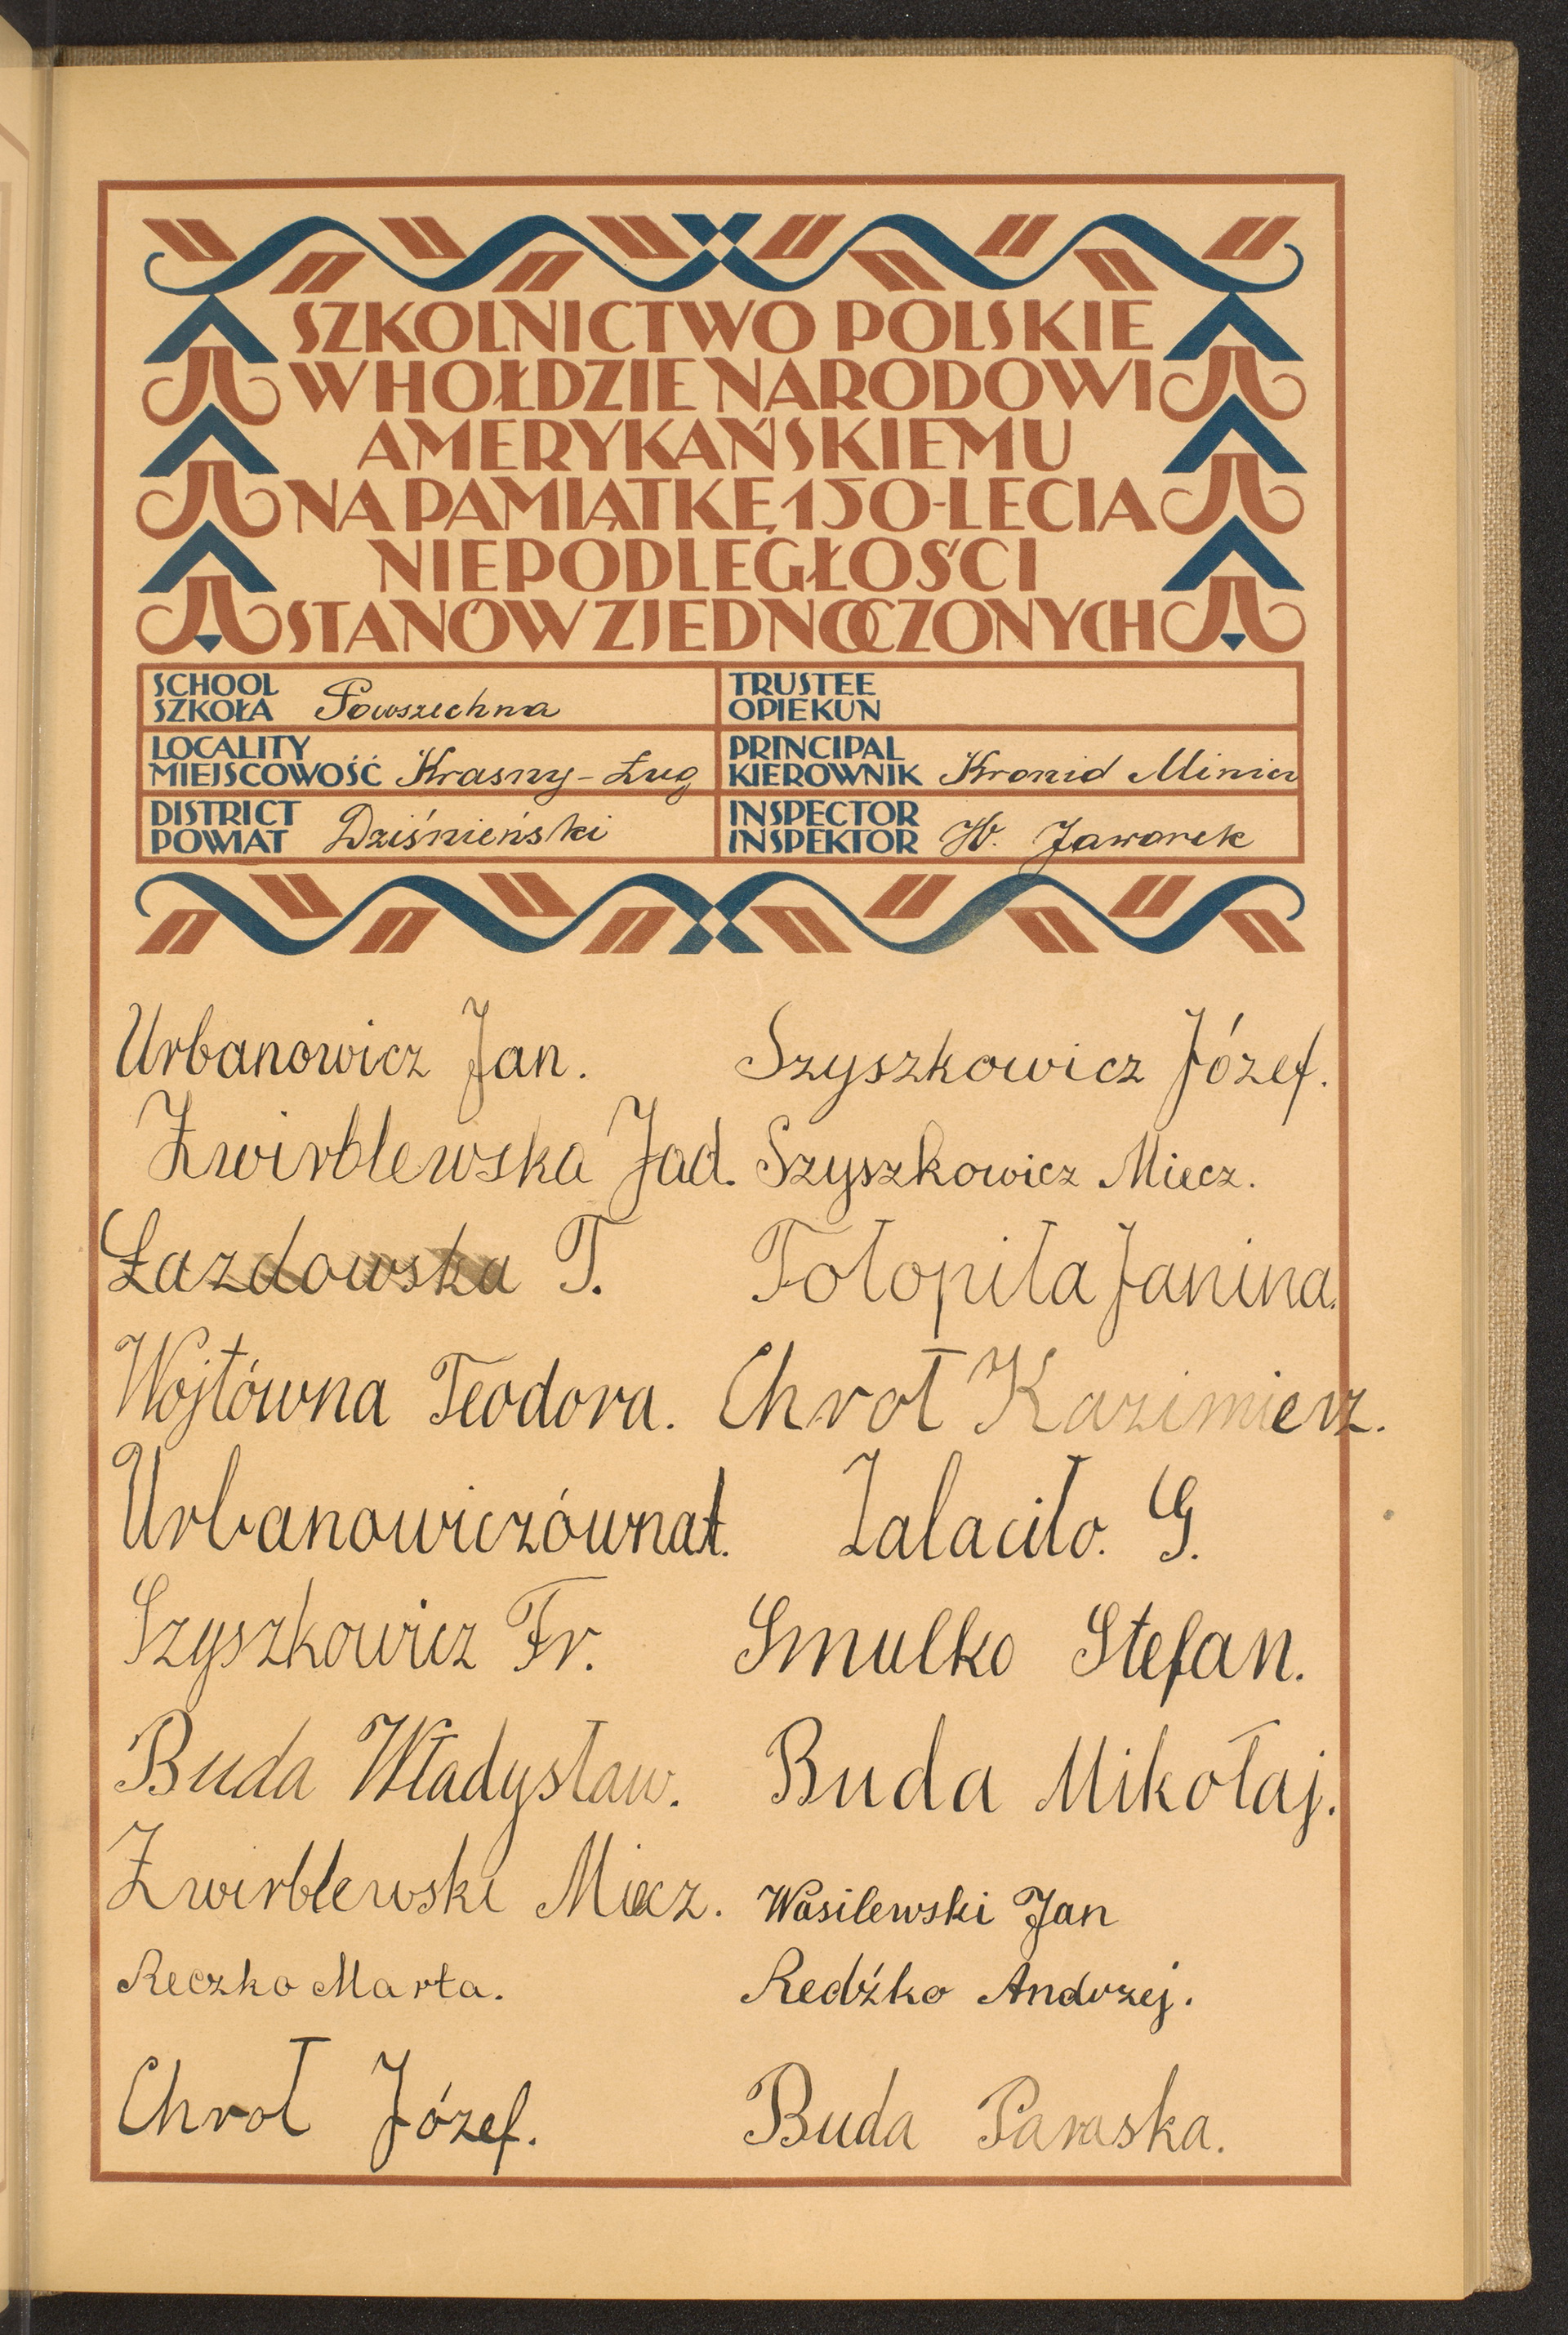 SZKOLNICTWO POLSKIE
W HOŁDZIE NARODOWI
AMERYKAŃSKIEMU
NA PAMIĄTKĘ 150-LECIA
NIEPODLEGŁOŚCI
STANÓW ZJEDNOCZONYCH
SCHOOL
SZKOŁA Powszechna
TRUSTEE
OPIEKUN
LOCALITY
MIEJSCOWOŚĆ Krasny-Ług
PRINCIPAL
KIEROWNIK Kronid Minicz
DISTRICT
POWIAT Dziśnieński
INSPECTOR
INSPEKTOR W. Jaworek
Urbanowicz Jan. Szyszkowicz Józef.
Zwirblewska Jad. Szyszkowicz Miecz.
Łazdowska T. Tołopiła Janina.
Wojtówna Teodora. Chroł Kazimierz.
Urbanowiczówna t. Zalaciło. G.
Szyszkowicz Fr. Smulko Stefan.
Buda Władysław. Buda Mikołaj.
Zwirblewski Miecz. Wasilewski Jan
Reczko Marta. Redźko Andrzej.
Chroł Józef. Buda Paraska.